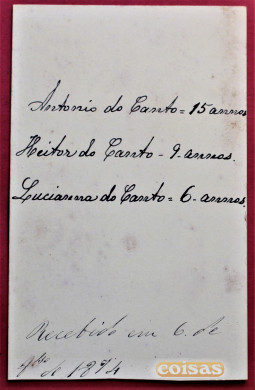 Antonio do Canto = 15 annos
Heitor do Canto - 9 - annos.
Lucianna do Canto = 6 - annos.
Recebido em 6 de
9bro de 1874
coisas